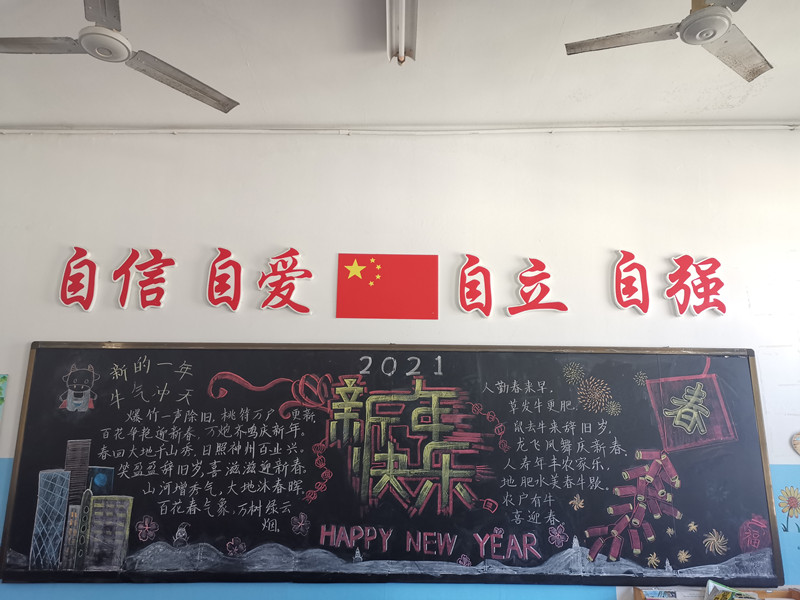 自信 自爱 自立 自强
2021
新的一年
牛气冲天
爆竹一声除旧,桃符万户更新
百花争艳迎新春,万炮齐鸣庆新年。
春回大地千山秀,日照神州百业兴。
笑盈盈辞旧岁,喜滋滋迎新春
山河增秀气,大地沐春晖。
百花春气象,万树绿云
烟。
新年
快乐
HAPPY NEW YEAR
人勤春来早,
草发牛更肥。
鼠去牛来辞旧岁,
龙飞凤舞庆新春。
人寿年丰农家乐,
地肥水美春牛歌。
农户有牛
喜迎春
春
福